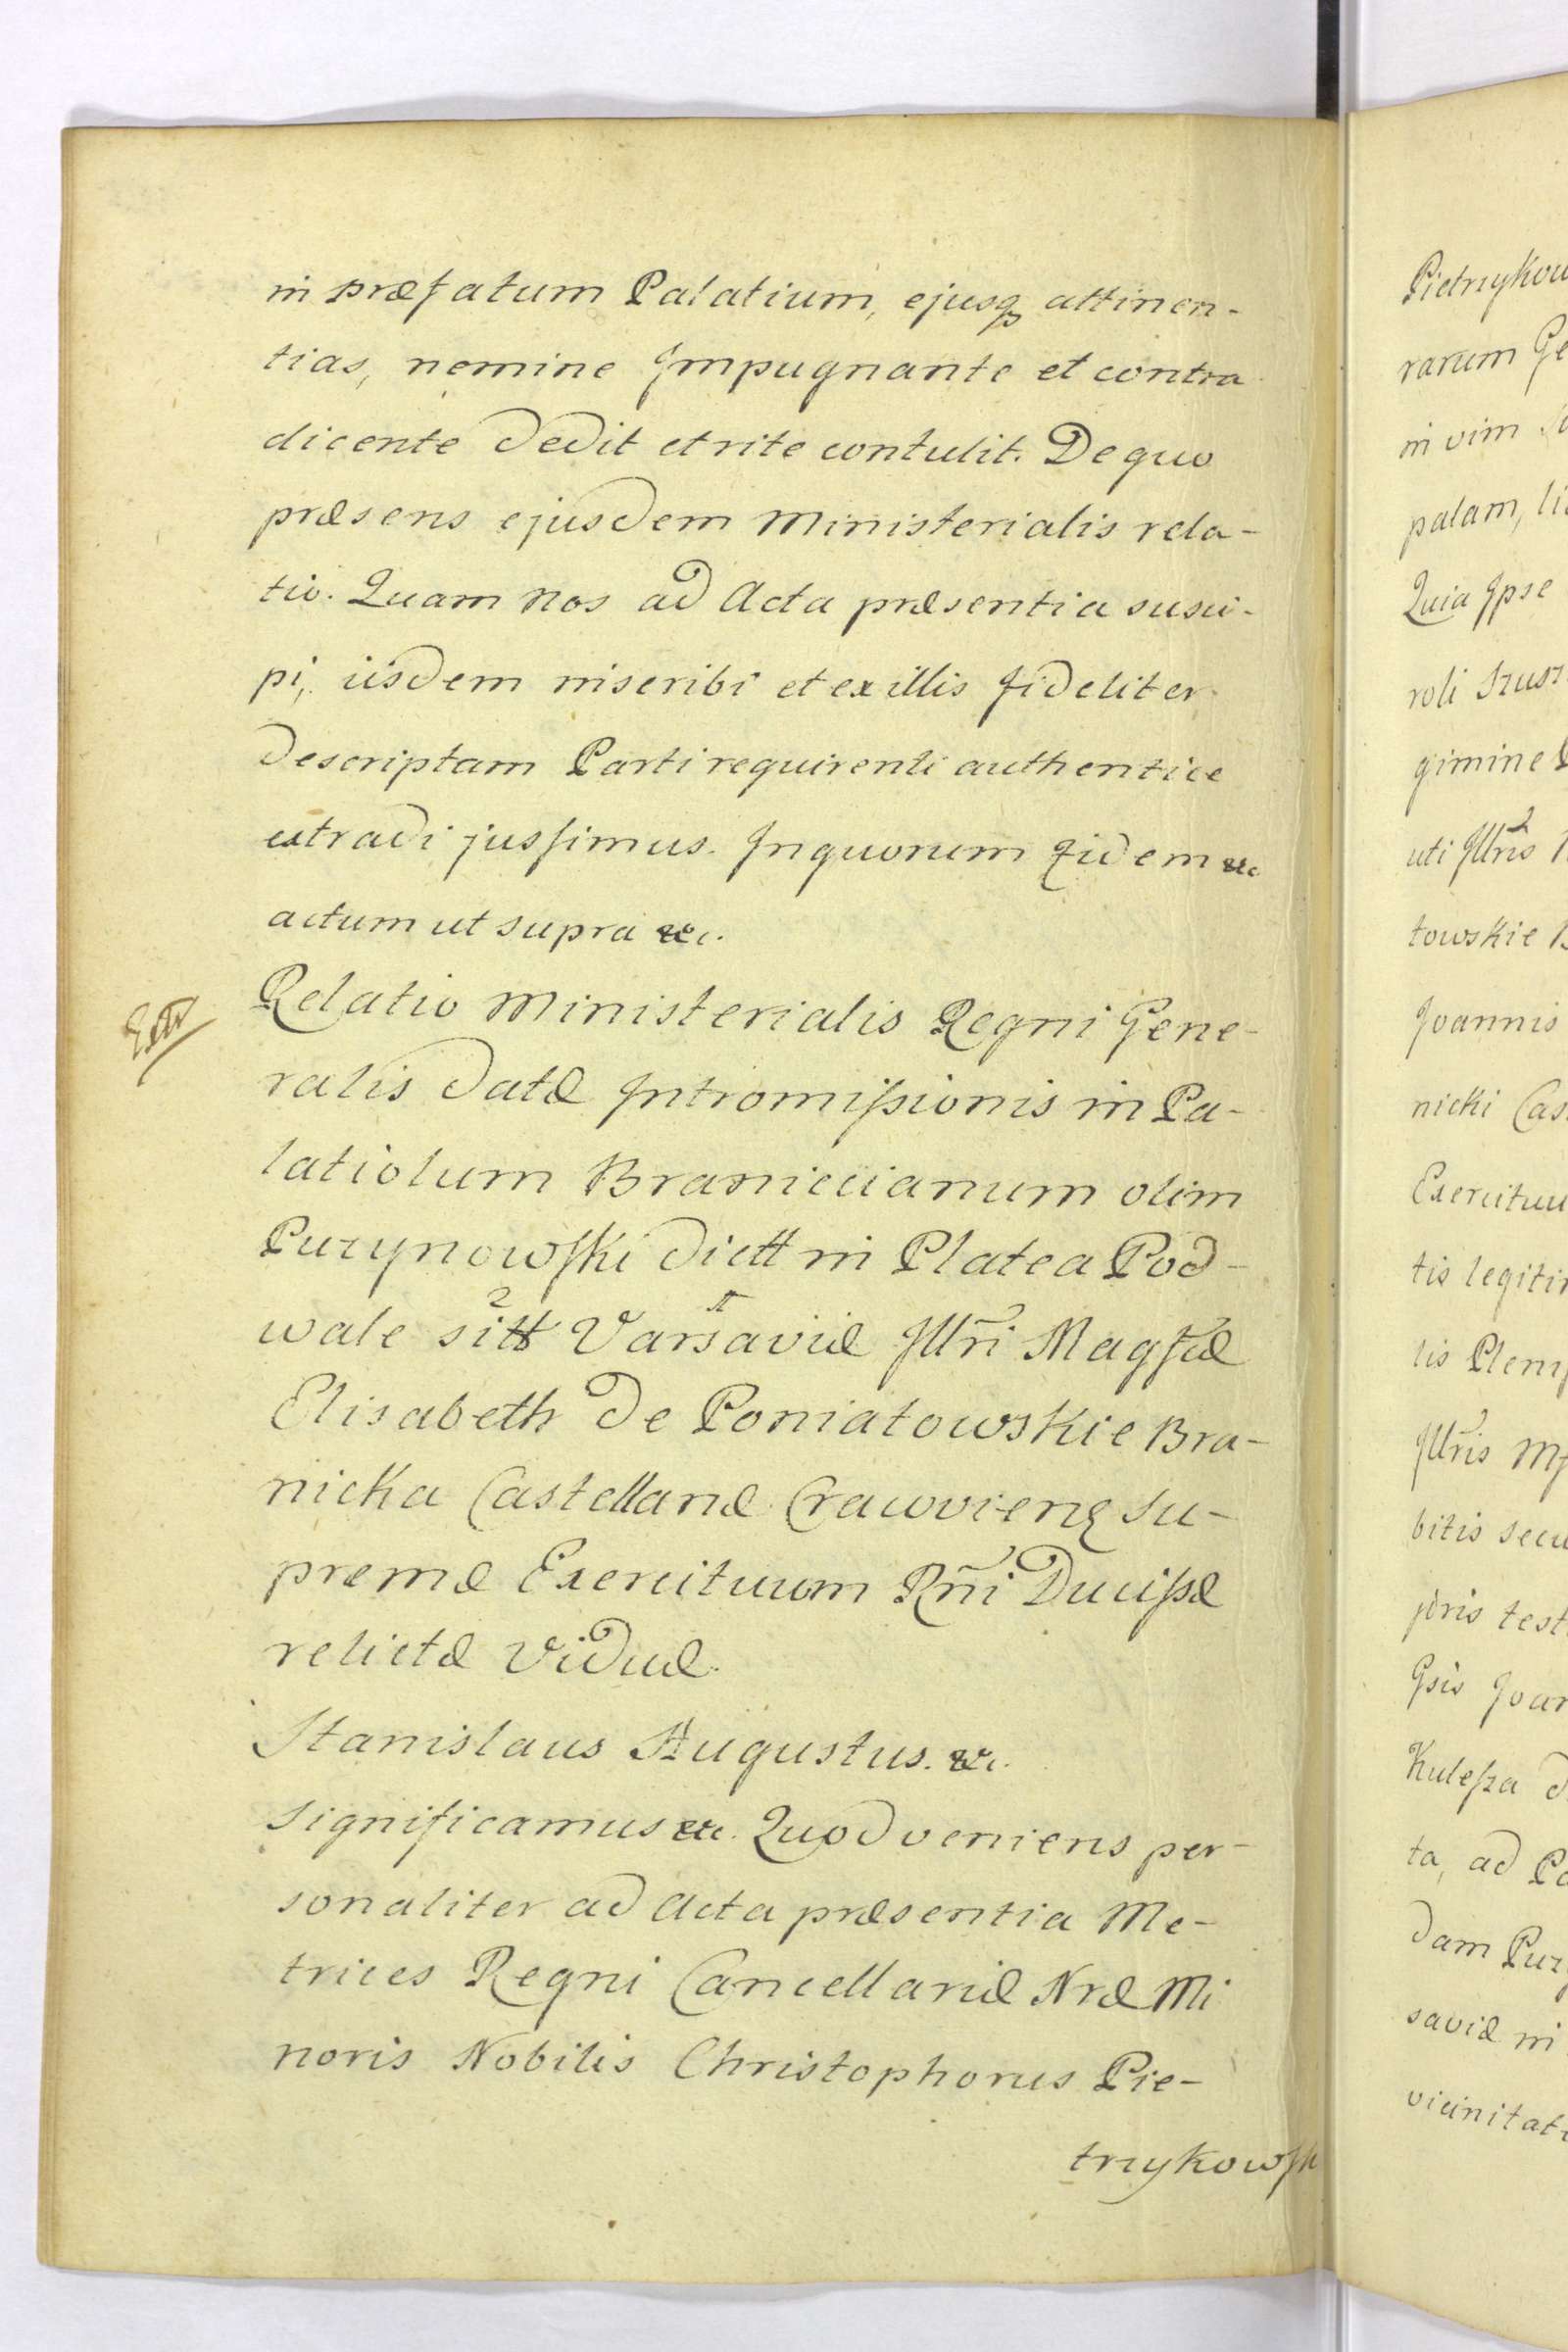 in præfatum Palatium, ejusq attinen-
tias, nemine Impugnante et contra
dicente dedit et rite contulit. De quo
præsens ejusdem Ministerialis rela-
tio. Quam Nos ad Acta præsentia susci-
pi, iisdem inscribi et ex illis fideliter
descriptam Parti requirenti authentice
extradi jussimus. In quorum fidem &c
actum ut supra &c.
Relatio Ministerialis Regni Gene-
ralis datæ Intromissionis in Pa-
latiolum Braniccianum olim
Puzynowski dictt in Platea Pod-
wale sitt Varsaviæ Illri Magfcæ
Elisabeth de Poniatowskie Bra-
nicka Castellanæ Cracovienẛ Su-
premæ Exercituum Rni Ducissæ
relictæ Viduæ.
Stanislaus Augustus. &c.
Significamus &c. Quod veniens per-
sonaliter ad Acta præsentia Me-
trices Regni Cancellariæ Nræ Mi
noris Nobilis Christophorus Pie-
trzykowsk
Pietrzykow
rarum Ge
in vim
palam, li
Quia Ipse
roli Szusz
gimine
uti Illris
towskie B
Joannis
nicki Cas
Exercituu
tis legitim
lis Plenip
Illris M
bitis secu
joris test
Gsis Joan
Kulesza d
ta, ad Pa
dam Puz
saviæ in
vicinitat